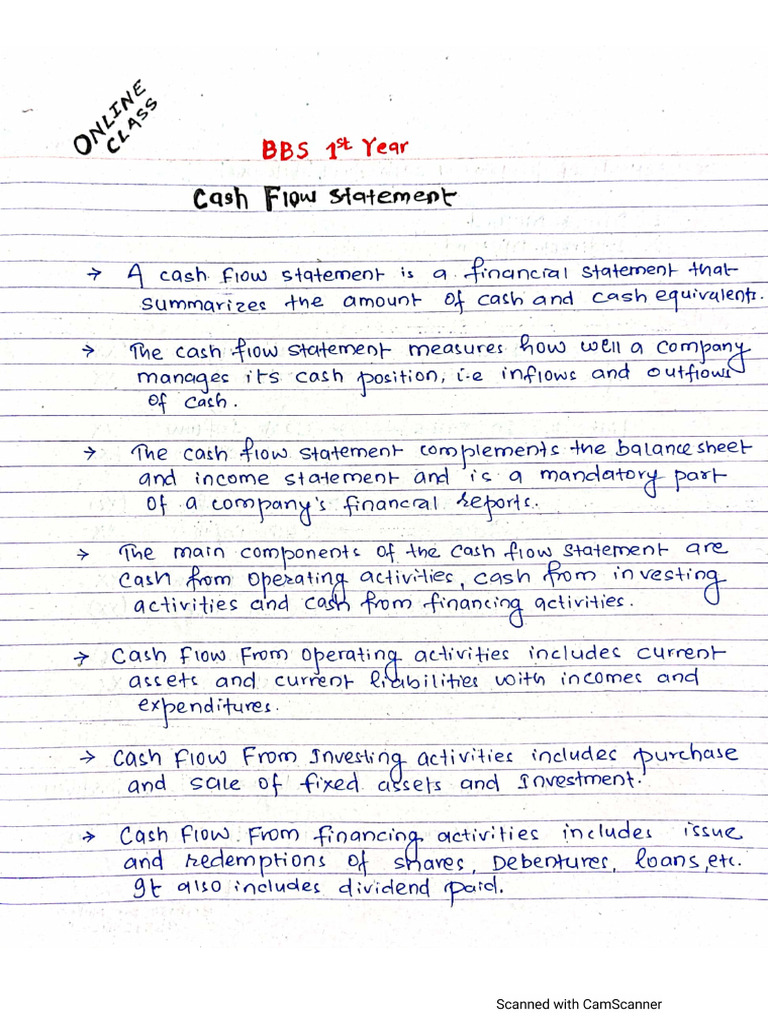 ONLINE
CLASS
BBS 1st Year
Cash Flow Statement
→ A cash flow statement is a financial statement that
summarizes the amount of cash and cash equivalents.
→ The cash flow statement measures how well a company
manages its cash position, i.e inflows and outflows
of cash.
→ The cash flow statement complements the balance sheet
and income statement and is a mandatory part
of a company's financial reports.
→ The main components of the cash flow statement are
cash from operating activities, cash from investing
activities and cash from financing activities.
→ Cash flow from operating activities includes current
assets and current liabilities with incomes and
expenditures.
→ Cash flow From Investing activities includes purchase
and sale of fixed assets and Investment.
→ Cash flow From financing activities includes issue
and redemptions of shares, Debentures, loans, etc.
It also includes dividend paid.
Scanned with CamScanner